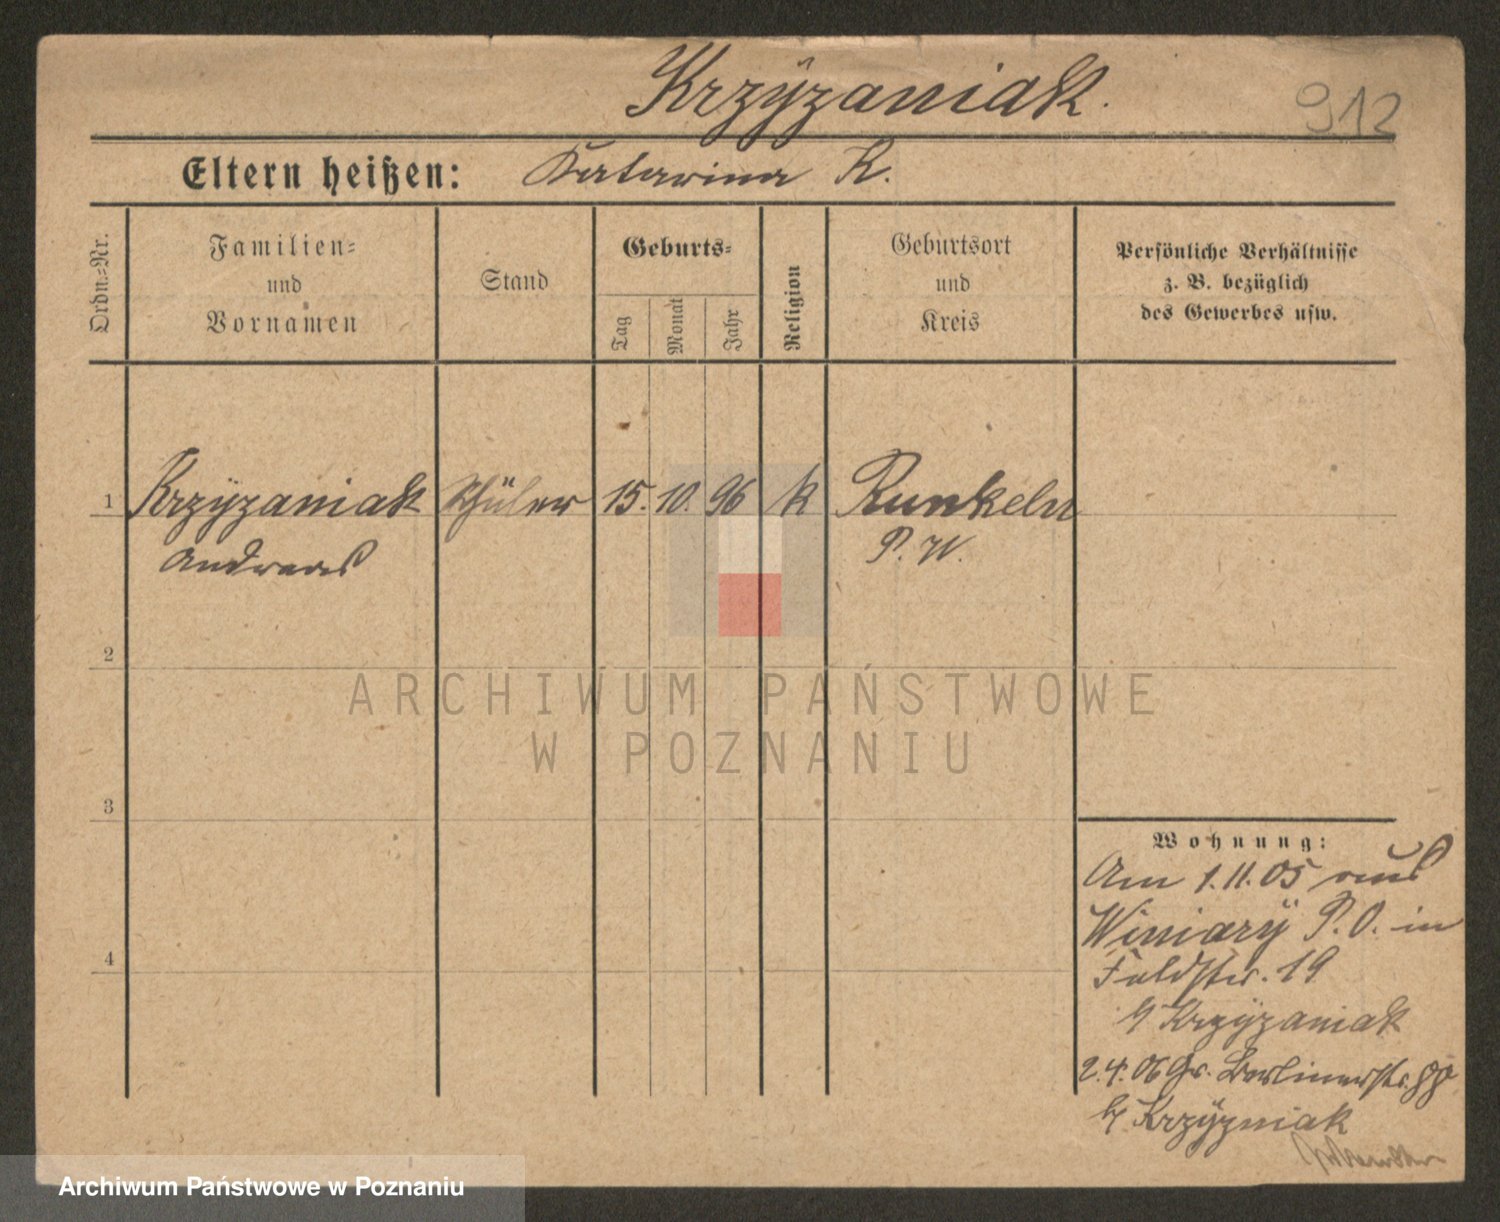 Krzÿzaniak.
912
Eltern heißen: Katarina K.
Ordn.=Nr.
Familien=
und
Vornamen
Stand
Geburts=
Tag
Monat
Jahr
Religion
Geburtsort
und
Kreis
Persönliche Verhältnisse
z. B. bezüglich
des Gewerbes usw.
1 Krzÿzaniak Schüler 15. 10. 96 k Runkeln
Andreas P. W.
2
ARCHIWUM PAŃSTWOWE
W POZNANIU
3
4
Wohnung:
Am 1.11.05 aus
Winiarÿ P.O. in
Feldstr. 19
b/ Krzÿzaniak
2.4.06 Gr. Berlinerstr.
b/ Krzÿzniak
Archiwum Państwowe w Poznaniu